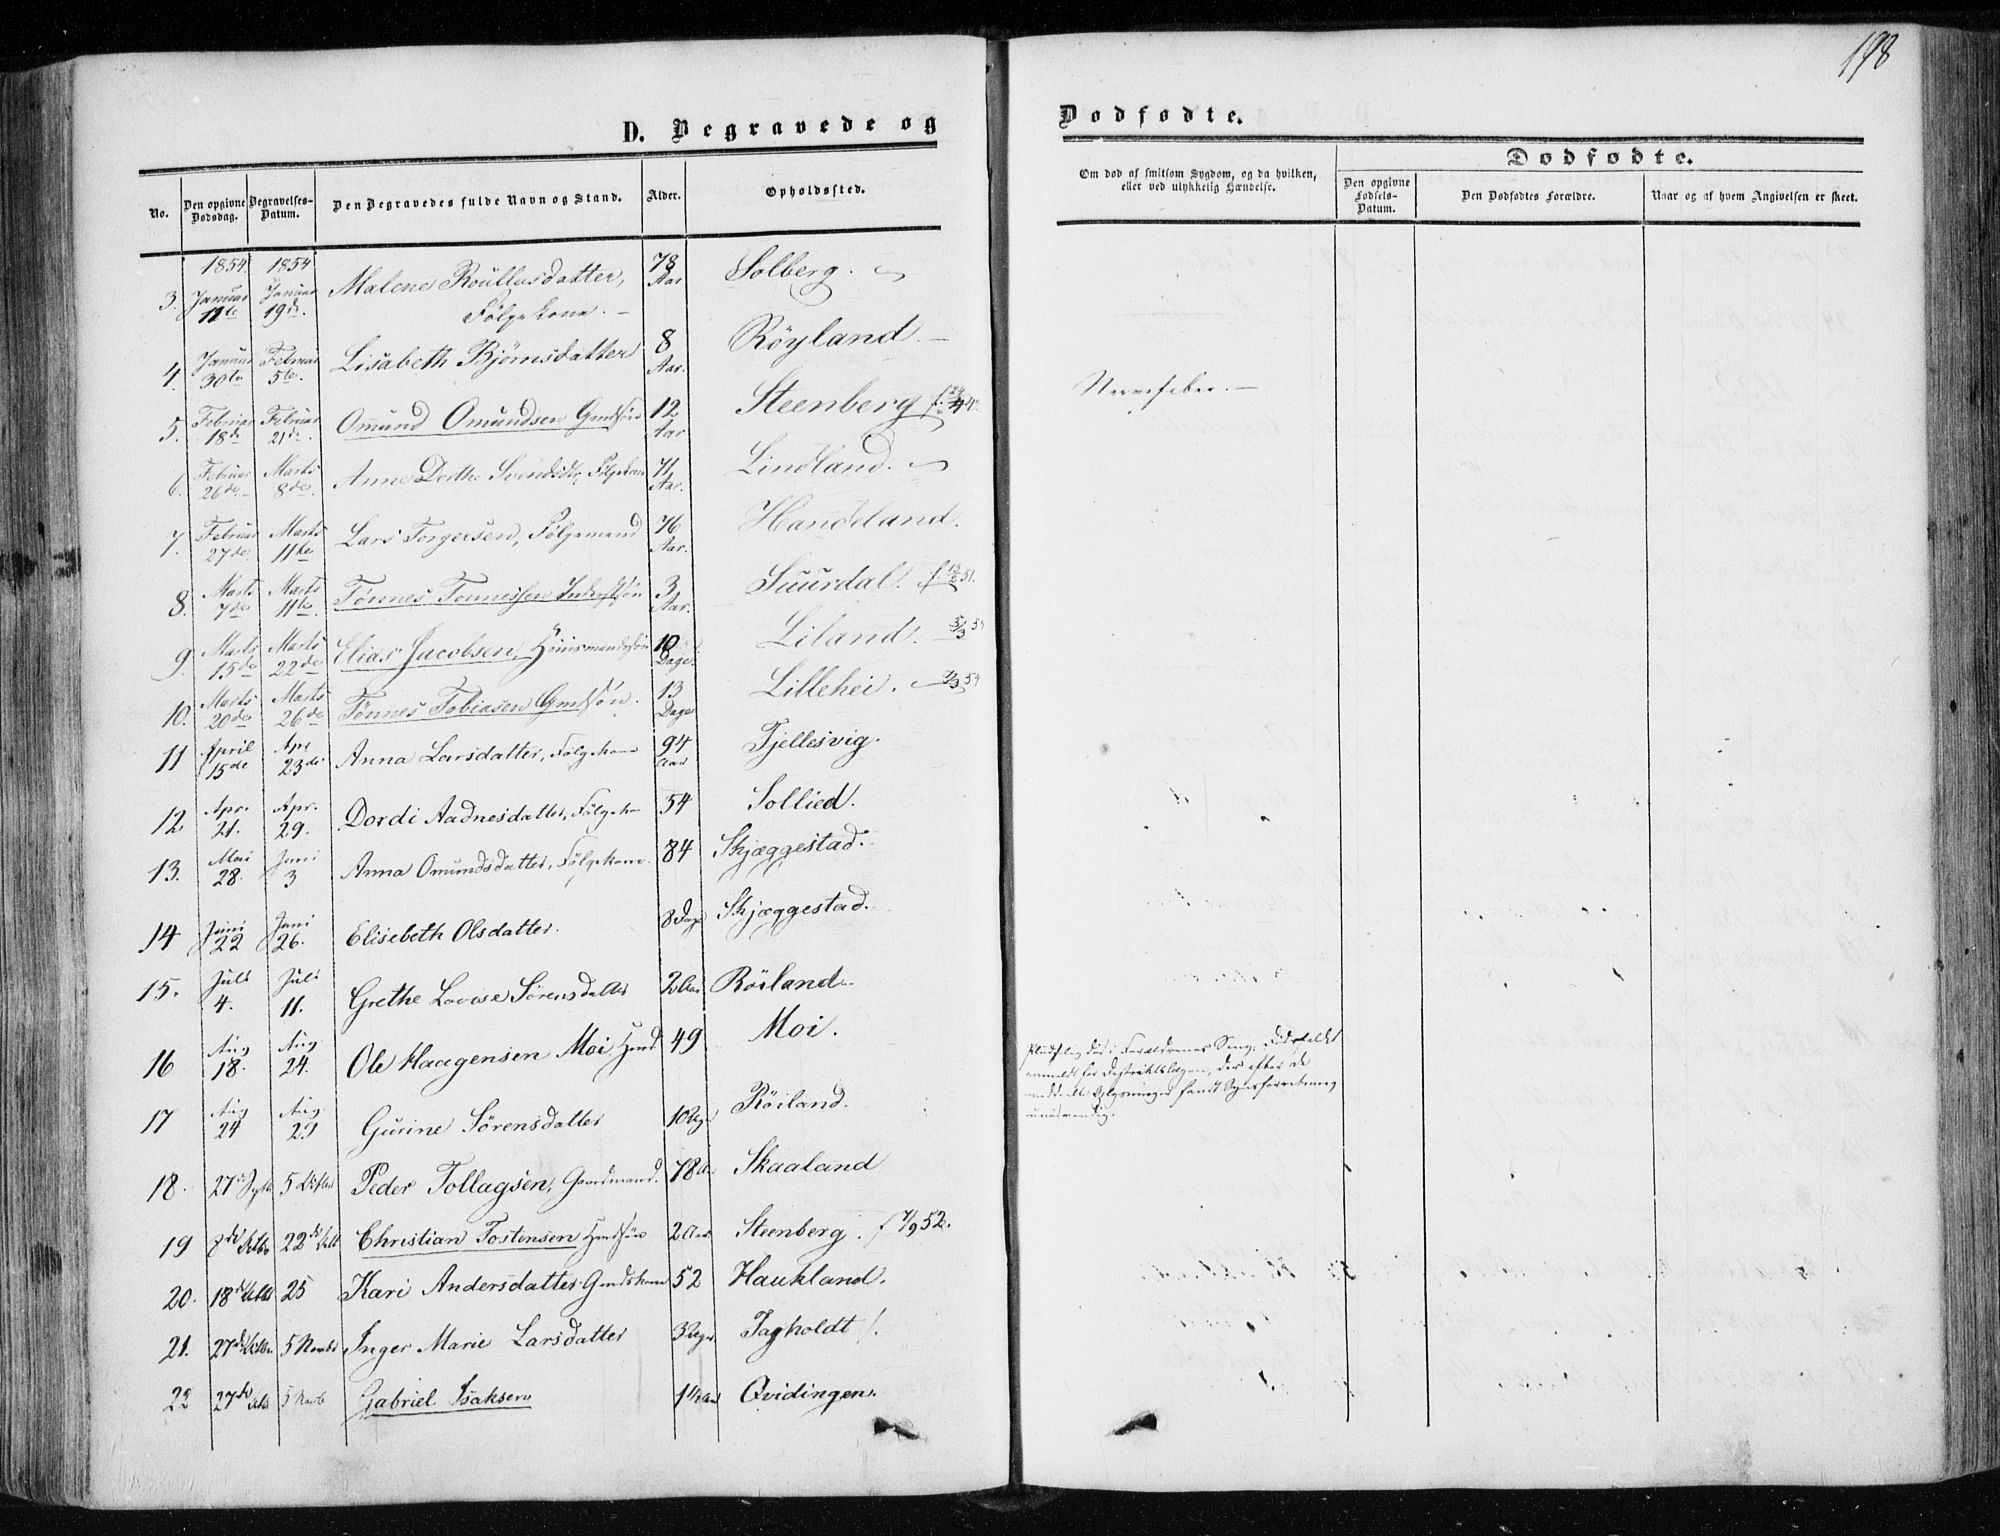 198
D. Begravede og
Dødfødte.
No.
Den opgivne Dødsdag.
Begravelses-Datum.
Den Begravedes fulde Navn og Stand.
Alder.
Opholdssted.
Om død af smitsom Sygdom, og da hvilken, eller ved ulykkelig Hændelse.
Dødfødte.
Den opgivne Fødsels-Datum.
Den Dødfødtes Forældre.
Naar og af hvem Angivelsen er skeet.
1854 1854
3. Januar 11te Januar 19de Malene Roullusdatter, Følgekone. 78 Aar Solberg.
4. Januar 30te Februar 5te. Lisabeth Bjørnsdatter 8 Aar. Röyland.
5. Februar 18de Februar 21de. Omund Omundsen Gmdssön 12 Aar Steenberg Nervefeber.
6. Februar 26de Marts 8de. Anne Dorthe Svendsdtr, Følgekone 71 Aar. Lindland.
7. Februar 27de Marts 11te Lars Torgersen, Følgemand 76 Aar. Handeland.
8. Marts 7de Marts 11te Tönnes Tönnessen 3 Aar. Suurdal. f. 51.
9. Marts 15de Marts 22de Elias Jacobsen, Huusmandssön 10 Dage Liland. 5/3 54
10. Marts 20de Marts 26de Tönnes Tobiasen Gmdssön. 13 Dage Lillehei. 7/3 54
11 April 15de Apr 23de Anna Larsdatter, Følgekone 94 Aar Fjellesvig.
12 Apr. 21. Apr. 29. Dordi Aadnesdatter, Følgekone 54 Sollied.
13. Mai 28. Juni 3 Anna Omundsdatter, Følgekone. 84 Skjæggestad.
14 Juni 22 Juni 26. Elisebeth Olsdatter. 8 Dage Skjæggestad.
15. Juli 4. Juli 11. Grethe Lovise Sörensdatter 2 Aar Röiland.
16 Aug 18. Aug 24. Ole Haagensen Moi, Gmd 49 Moi.
Pludselig død i Forældrenes Seng. Dødsfaldet
anmeldt for Destriktslægen, der efter de
meddelte Oplysninger fandt Synsforretning
unødvendig.
17 Aug 24 Aug 29 Gurine Sörensdatter 10 Röiland.
18. 27de Septb 5 Octbr Peder Tollagsen, Gaardmand. 78 Aar Skaaland
19 8de Octbr 22de Octb Christian Tostensen 2 Aar Steenberg. f 7/9 52.
20. 18de Octbr 25 Kari Andersdatter Gmdskone 52 Haukland.
21. 27de Octbr. 5 Novbr Inger Marie Larsdatter 3 Fagholdt.
22 27de Octbr 5 Novb Gabriel Isaksen 1 1/2 Aar Qvidingen.